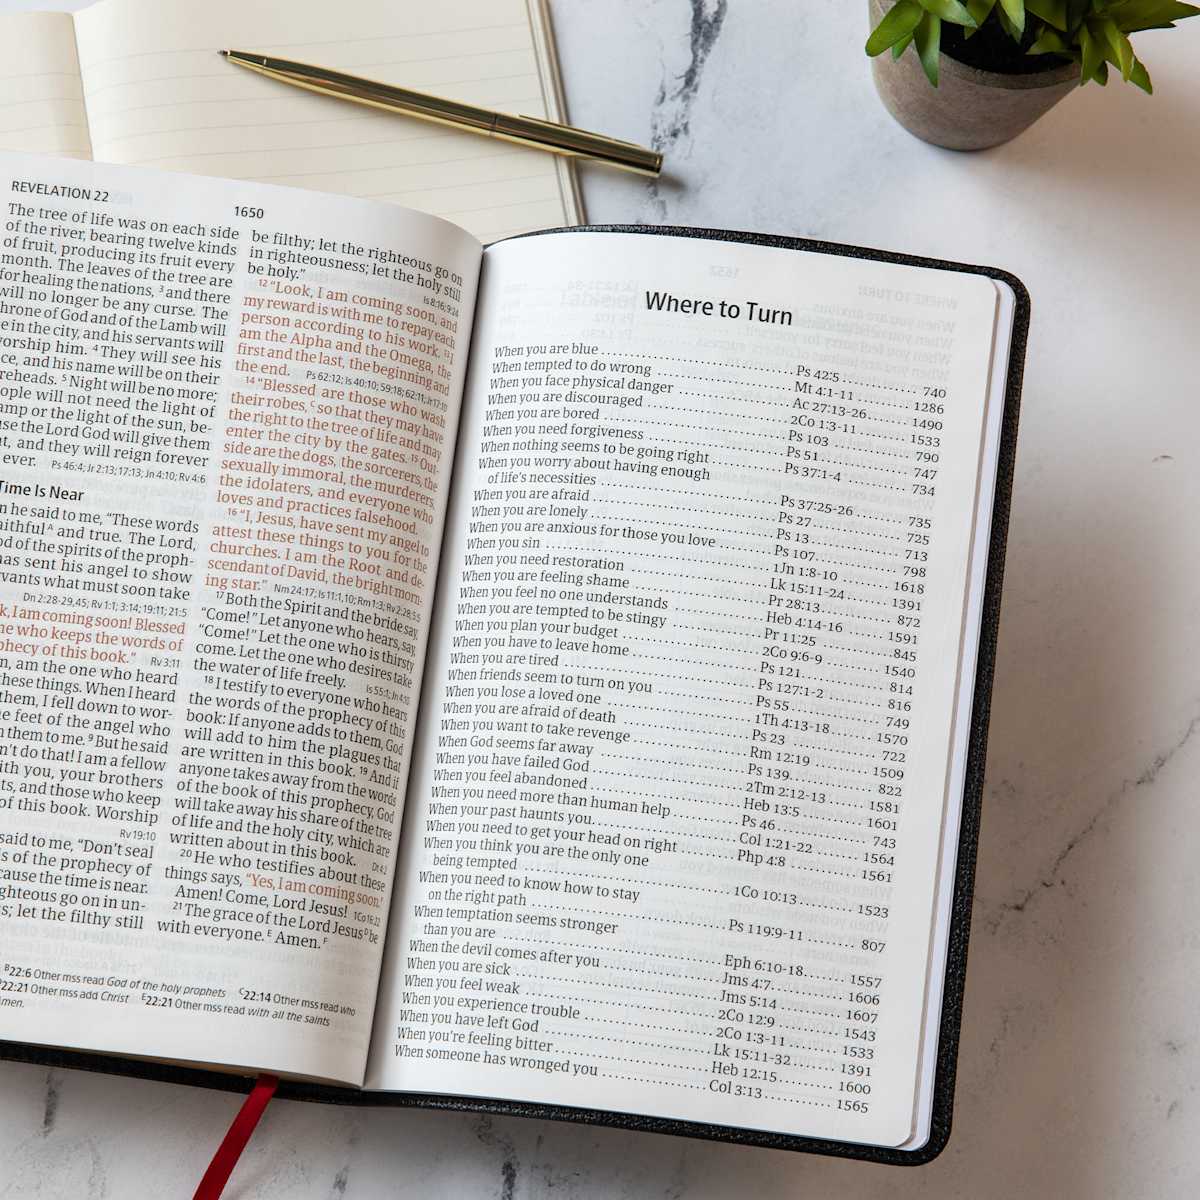 REVELATION 22
1650
The tree of life was on each side
of the river, bearing twelve kinds
of fruit, producing its fruit every
month. The leaves of the tree are
for healing the nations, 3 and there
will no longer be any curse. The
throne of God and of the Lamb will
be in the city, and his servants will
worship him. 4 They will see his
and his name will be on their
5 Night will be no more;
will not need the light of
or the light of the sun, be-
the Lord God will give them
and they will reign forever
ever. Ps 46:4; Jr 2:13; 17:13; Jn 4:10; Rv 4:6
Time Is Near
he said to me, “These words
A and true. The Lord,
of the spirits of the proph-
has sent his angel to show
what must soon take
Dn 2:28-29,45; Rv 1:1; 3:14; 19:11; 21:5
I am coming soon! Blessed
who keeps the words of
of this book.” Rv 3:11
am the one who heard
these things. When I heard
them, I fell down to wor-
feet of the angel who
them to me. 9 But he said
do that! I am a fellow
with you, your brothers
and those who keep
of this book. Worship
Rv 19:10
said to me, “Don’t seal
of the prophecy of
the time is near.
go on in un-
let the filthy still
be filthy; let the righteous go on
in righteousness; let the holy still
be holy.” Is 8:16; 9:24
12 “Look, I am coming soon, and
my reward is with me to repay each
person according to his work. 13 I
am the Alpha and the Omega, the
first and the last, the beginning and
the end. Ps 62:12; Is 40:10; 59:18; 62:11; Jr 17:10
14 “Blessed are those who wash
their robes, C so that they may have
the right to the tree of life and may
enter the city by the gates. 15 Out-
side are the dogs, the sorcerers, the
sexually immoral, the murderers,
the idolaters, and everyone who
loves and practices falsehood.
16 “I, Jesus, have sent my angel to
attest these things to you for the
churches. I am the Root and de-
scendant of David, the bright morn-
ing star.” Nm 24:17; Is 11:1,10; Rm 1:3; Rv 2:28; 5:5
17 Both the Spirit and the bride say,
“Come!” Let anyone who hears, say,
“Come!” Let the one who is thirsty
come. Let the one who desires take
the water of life freely. Is 55:1; Jn 4:10
18 I testify to everyone who hears
the words of the prophecy of this
book: If anyone adds to them, God
will add to him the plagues that
are written in this book. 19 And if
anyone takes away from the words
of the book of this prophecy, God
will take away his share of the tree
of life and the holy city, which are
written about in this book. Dt 4:2
20 He who testifies about these
things says, “Yes, I am coming soon.”
Amen! Come, Lord Jesus! 1Co 16:22
21 The grace of the Lord Jesus D be
with everyone. E Amen. F
B 22:6 Other mss read God of the holy prophets C 22:14 Other mss read who
22:21 Other mss add Christ E 22:21 Other mss read with all the saints
Where to Turn
When you are blue ..... Ps 42:5 ..... 740
When tempted to do wrong ..... Mt 4:1-11 ..... 1286
When you face physical danger ..... Ac 27:13-26 ..... 1490
When you are discouraged ..... 2Co 1:3-11 ..... 1533
When you are bored ..... Ps 103 ..... 790
When you need forgiveness ..... Ps 51 ..... 747
When nothing seems to be going right ..... Ps 37:1-4 ..... 734
When you worry about having enough
of life’s necessities ..... Ps 37:25-26 ..... 735
When you are afraid ..... Ps 27 ..... 725
When you are lonely ..... Ps 13 ..... 713
When you are anxious for those you love ..... Ps 107 ..... 798
When you sin ..... 1Jn 1:8-10 ..... 1618
When you need restoration ..... Lk 15:11-24 ..... 1391
When you are feeling shame ..... Pr 28:13 ..... 872
When you feel no one understands ..... Heb 4:14-16 ..... 1591
When you are tempted to be stingy ..... Pr 11:25 ..... 845
When you plan your budget ..... 2Co 9:6-9 ..... 1540
When you have to leave home ..... Ps 121 ..... 814
When you are tired ..... Ps 127:1-2 ..... 816
When friends seem to turn on you ..... Ps 55 ..... 749
When you lose a loved one ..... 1Th 4:13-18 ..... 1570
When you are afraid of death ..... Ps 23 ..... 722
When you want to take revenge ..... Rm 12:19 ..... 1509
When God seems far away ..... Ps 139 ..... 822
When you have failed God ..... 2Tm 2:12-13 ..... 1581
When you feel abandoned ..... Heb 13:5 ..... 1601
When you need more than human help ..... Ps 46 ..... 743
When your past haunts you ..... Col 1:21-22 ..... 1564
When you need to get your head on right ..... Php 4:8 ..... 1561
When you think you are the only one
being tempted ..... 1Co 10:13 ..... 1523
When you need to know how to stay
on the right path ..... Ps 119:9-11 ..... 807
When temptation seems stronger
than you are ..... Eph 6:10-18 ..... 1557
When the devil comes after you ..... Jms 4:7 ..... 1606
When you are sick ..... Jms 5:14 ..... 1607
When you feel weak ..... 2Co 12:9 ..... 1543
When you experience trouble ..... 2Co 1:3-11 ..... 1533
When you have left God ..... Lk 15:11-32 ..... 1391
When you’re feeling bitter ..... Heb 12:15 ..... 1600
When someone has wronged you ..... Col 3:13 ..... 1565